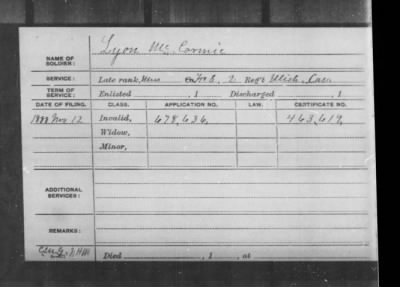 Lyon Mc Cormic
NAME OF SOLDIER:
SERVICE: Late rank, Mus Tr B, 2 Reg't Mich. Cav.
TERM OF SERVICE: Enlisted , 1 Discharged , 1
DATE OF FILING. CLASS. APPLICATION NO. LAW. CERTIFICATE NO.
1888 Nov 12 Invalid, 678,636, 463,619,
Widow,
Minor,
ADDITIONAL SERVICES:
REMARKS:
Died , 1 , at